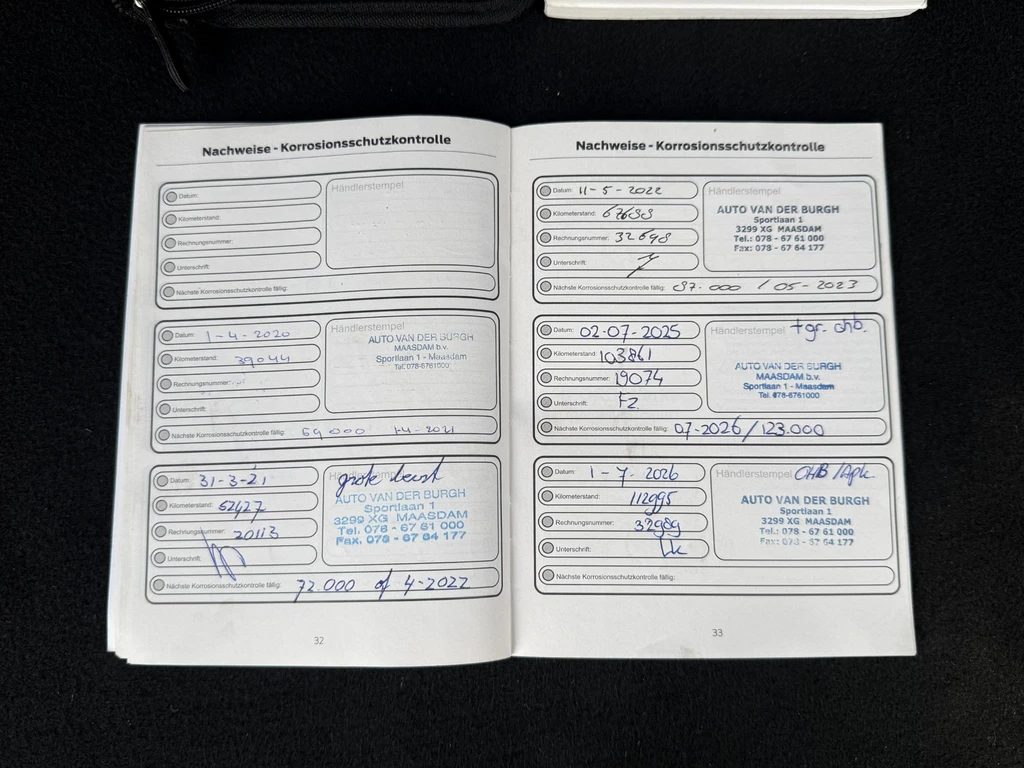 Nachweise - Korrosionsschutzkontrolle
Datum:
Kilometerstand:
Rechnungsnummer:
Unterschrift:
Händlerstempel
Nächste Korrosionsschutzkontrolle fällig:
Datum: 1-4-2020
Kilometerstand: 39044
Rechnungsnummer:
Unterschrift:
Händlerstempel
AUTO VAN DER BURGH
MAASDAM b.v.
Sportlaan 1 - Maasdam
Tel. 078-6761000
Nächste Korrosionsschutzkontrolle fällig: 69000 1-4-2021
Datum: 31-3-21
Kilometerstand: 52427
Rechnungsnummer: 20113
Unterschrift:
Händlerstempel grote beurt
AUTO VAN DER BURGH
Sportlaan 1
3299 XG MAASDAM
Tel. 078 - 67 61 000
Fax. 078 - 67 64 177
Nächste Korrosionsschutzkontrolle fällig: 72.000 of 4-2022
32
Nachweise - Korrosionsschutzkontrolle
Datum: 11-5-2022
Kilometerstand:
Rechnungsnummer: 32698
Unterschrift:
Händlerstempel
AUTO VAN DER BURGH
Sportlaan 1
3299 XG MAASDAM
Tel.: 078 - 67 61 000
Fax: 078 - 67 64 177
Nächste Korrosionsschutzkontrolle fällig: 87.000 / 05-2023
Datum: 02-07-2025
Kilometerstand: 103861
Rechnungsnummer: 19074
Unterschrift: FZ
Händlerstempel + gr. chb.
AUTO VAN DER BURGH
MAASDAM b.v.
Sportlaan 1 - Maasdam
Tel. 078-6761000
Nächste Korrosionsschutzkontrolle fällig: 07-2026/123.000
Datum: 1-7-2026
Kilometerstand: 112995
Rechnungsnummer: 32989
Unterschrift:
Händlerstempel CHB /Apk
AUTO VAN DER BURGH
Sportlaan 1
3299 XG MAASDAM
Tel.: 078 - 67 61 000
Fax: 078 - 67 64 177
Nächste Korrosionsschutzkontrolle fällig:
33